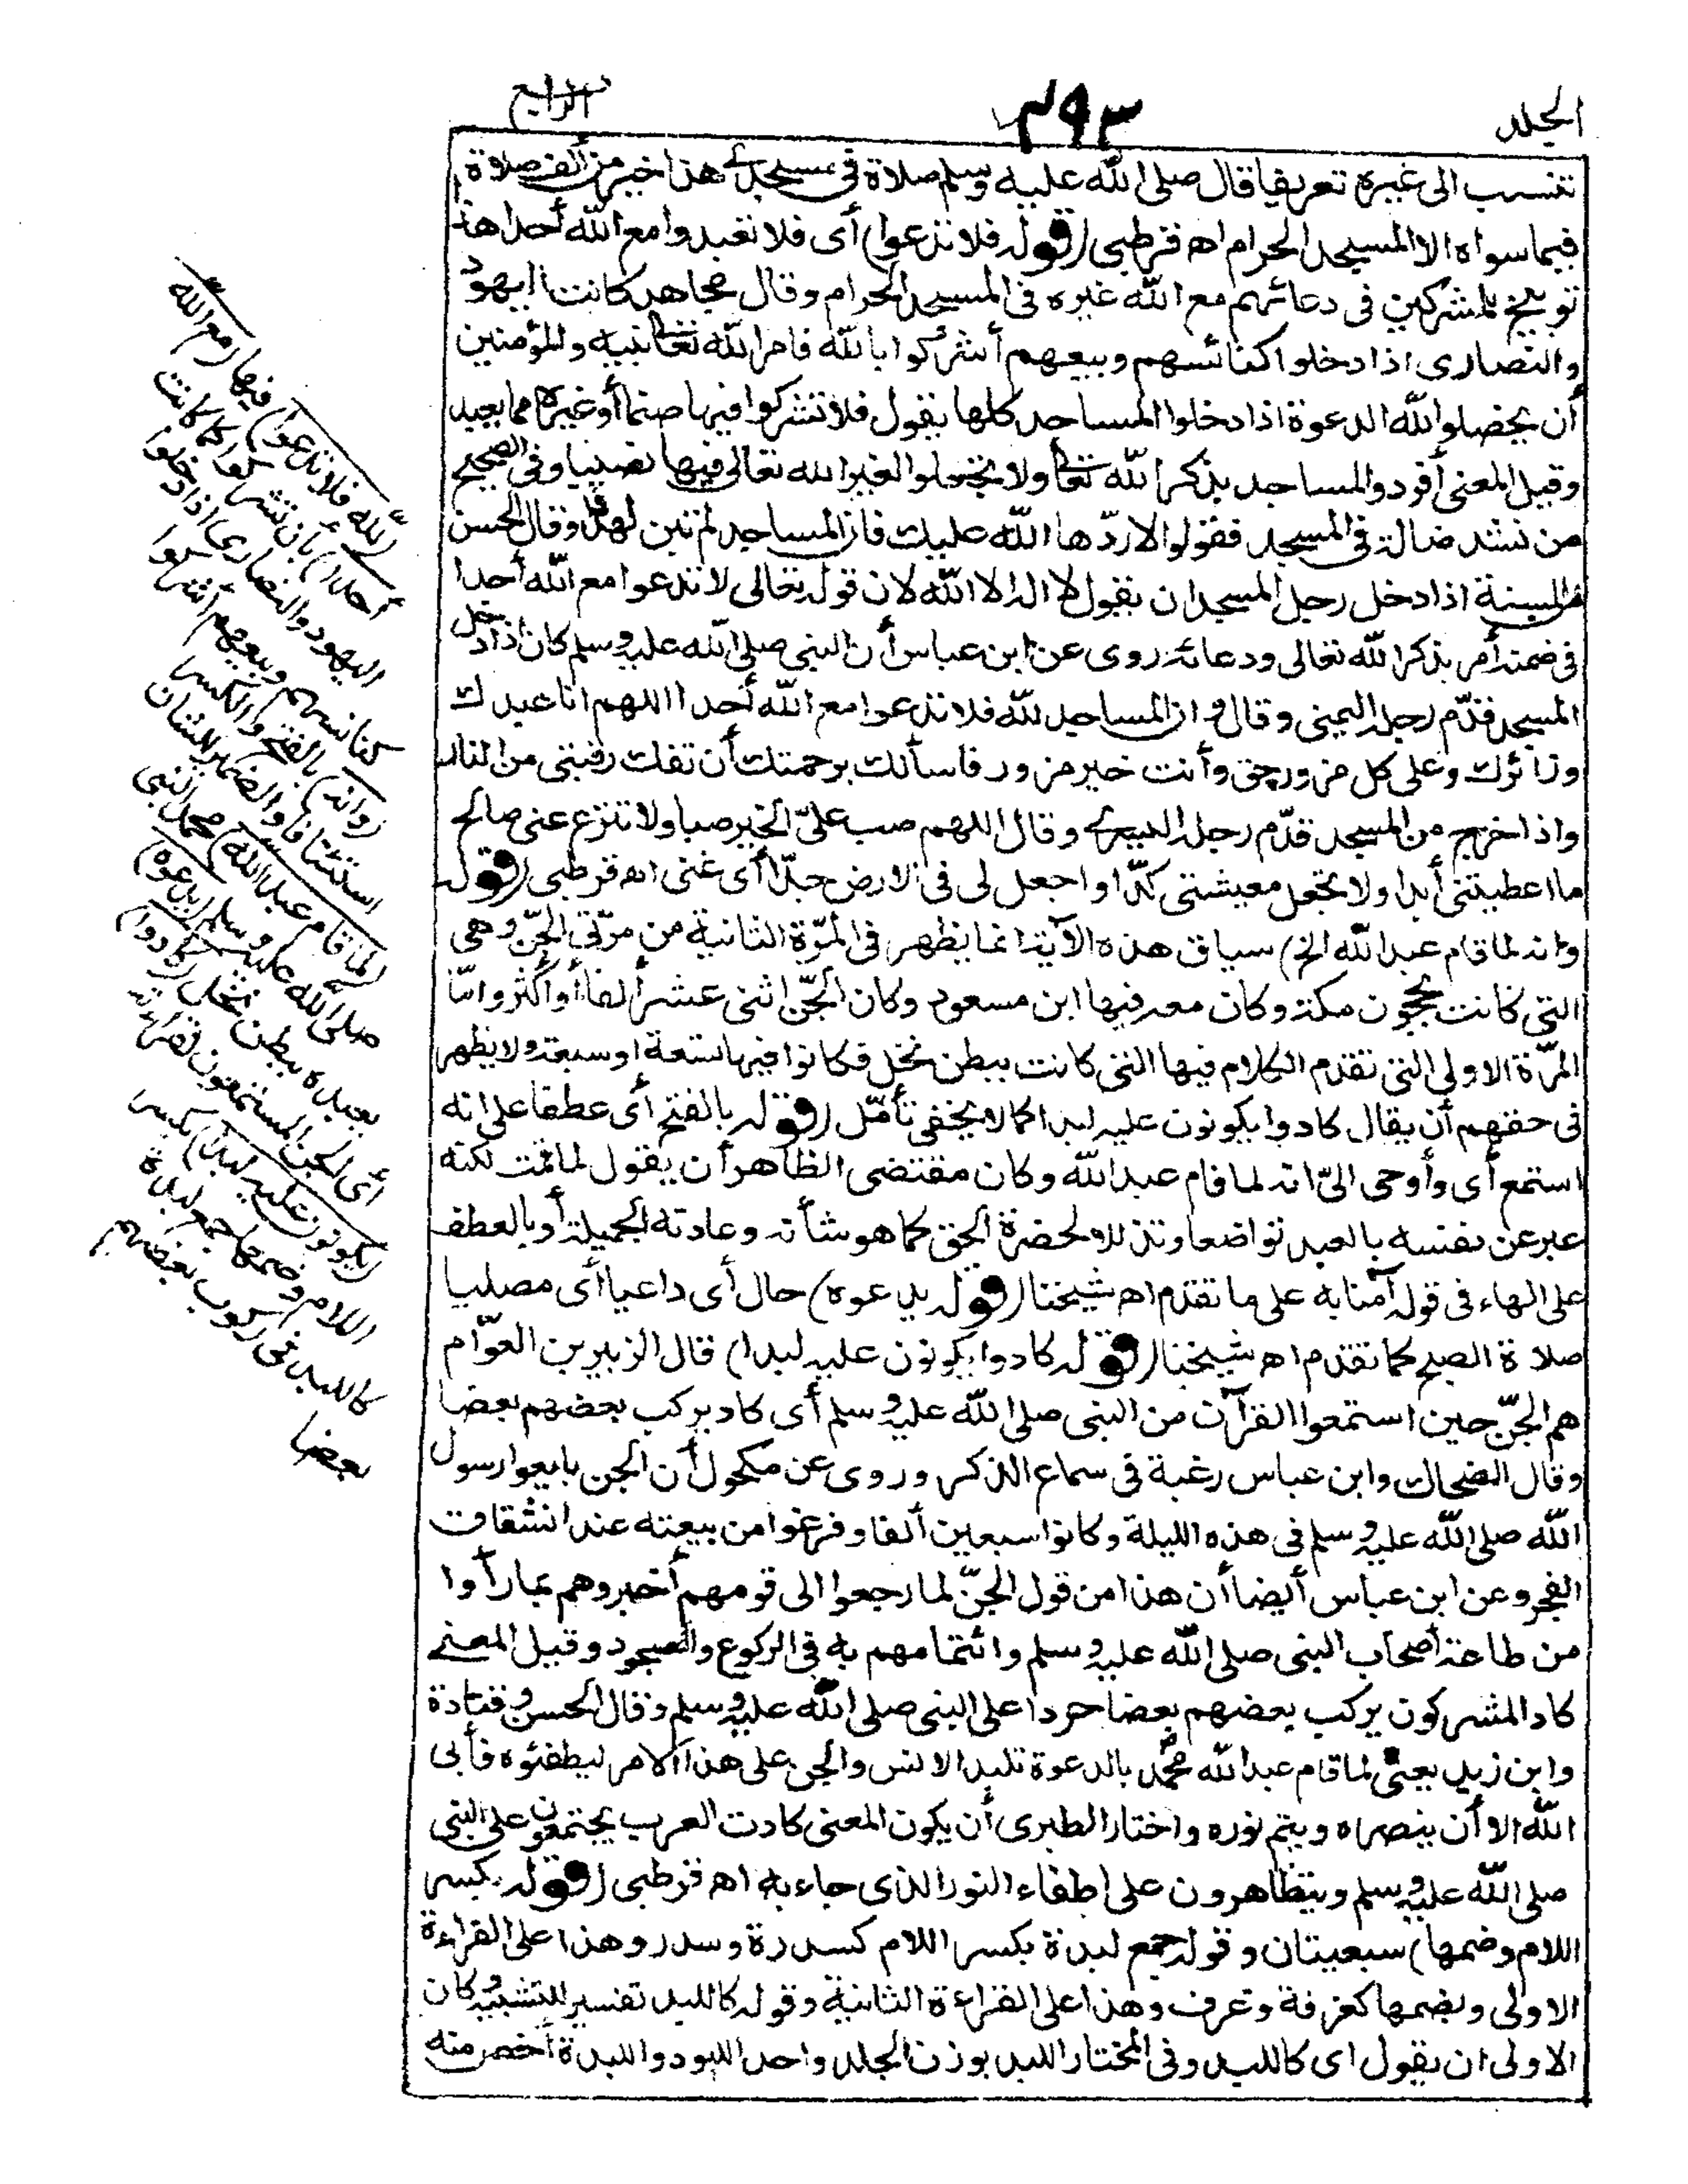 الجلد
٤٩٣
الرابع
تنسب الى غيره تعريفا قال صلى الله عليه وسلم صلاة في مسجدي هذا خير من ألف صلاة
فيما سواه الا المسجد الحرام اه قرطبي (قوله فلا تدعوا) أى فلا تعبدوا مع الله أحدا هذا
توبيخ للمشركين في دعائهم مع الله غيره في المسجد الحرام وقال مجاهد كانت اليهود
والنصارى اذا دخلوا كنائسهم وبيعهم أشركوا بالله فامر الله تعالى نبيه والمؤمنين
أن يخصلوا لله الدعوة اذا دخلوا المساجد كلها يقول فلا تشركوا فيها صنما أو غيره مما يعبد
وقيل المعنى أفردوا المساجد بذكر الله تعالى ولا تجعلوا لغير الله تعالى فيها نصيبا وفي الصحيح
من نشد ضالة في المسجد فقولوا لا ردّها الله عليك فان المساجد لم تبن لهذا وقال الحسن
من السنة اذا دخل رجل المسجد ان يقول لا اله الا الله لان قوله تعالى لا تدعوا مع الله أحدا
في ضمنه أمر بذكر الله تعالى ودعائه روى عن ابن عباس أن النبى صلى الله عليه وسلم كان اذا دخل
المسجد قدّم رجله اليمنى وقال وان المساجد لله فلا تدعوا مع الله أحدا اللهم انا عبدك
وزائرك وعلى كل مزور حق وأنت خير مزور فاسألك برحمتك أن تفك رقبتى من النار
واذا خرج من المسجد قدّم رجله اليسرى وقال اللهم صب علىّ الخير صبا ولا تنزع عنى صالح
ما اعطيتنى أبدا ولا تجعل معيشتى كدّا واجعل لى في الارض جدّا أى غنى اه قرطبى (قوله
وانه لما قام عبد الله الخ) سياق هذه الآية انما يظهر في المرّة الثانية من مرّتى الجنّ وهى
التى كانت بحجون مكة وكان معه فيها ابن مسعود وكان الجنّ اثنى عشر ألفا أو أكثر وامّا
المرّة الاولى التى تقدم الكلام فيها التى كانت ببطن نخل فكانوا فيها تسعة او سبعة ولا يظهر
فى حقهم أن يقال كادوا يكونون عليه لبدا كما لا يخفى تأمّل (قوله بالفتح أى عطفا على انه
استمع أى وأوحى الىّ انه لما قام عبد الله وكان مقتضى الظاهر أن يقول لما قمت لكنه
عبر عن نفسه بالعبد تواضعا وتذللا لحضرة الحق كما هو شأنه وعادته الجميلة أو بالعطف
على الهاء فى قوله آمنا به على ما تقدم اه شيخنا (قوله يدعوه) حال أى داعيا أى مصليا
صلاة الصبح كما تقدم اه شيخنا (قوله كادوا يكونون عليه لبدا) قال الزبير بن العوّام
هم الجنّ حين استمعوا القرآن من النبى صلى الله عليه وسلم أى كاد يركب بعضهم بعضا
وقال الضحاك وابن عباس رغبة في سماع الذكر وروى عن مكحول أن الجن بايعوا رسول
الله صلى الله عليه وسلم فى هذه الليلة وكانوا سبعين ألفا وفرغوا من بيعته عند انشقاق
الفجر وعن ابن عباس أيضا أن هذا من قول الجنّ لما رجعوا الى قومهم أخبروهم بما رأوا
من طاعة أصحاب النبى صلى الله عليه وسلم وائتمامهم به فى الركوع والسجود وقيل المعنى
كاد المشركون يركب بعضهم بعضا حردا على النبى صلى الله عليه وسلم وقال الحسن وقتادة
وابن زيد يعنى لما قام عبد الله محمّد بالدعوة تلبد الانس والجن على هذا الامر ليطفئوه فأبى
الله الا أن ينصره ويتم نوره واختار الطبرى أن يكون المعنى كادت العرب يجتمعون على النبى
صلى الله عليه وسلم ويتظاهرون على اطفاء النور الذى جاء به اه قرطبى (قوله بكسر
اللام وضمها) سبعيتان وقوله جمع لبدة بكسر اللام كسدرة وسدر وهذا على القراءة
الاولى وبضمها كغرفة وغرف وهذا على القراءة الثانية وقوله كاللبد تفسير للتشبيه وكان
الاولى ان يقول اى كاللبد وفى المختار اللبد بوزن الجلد واحد اللبود واللبدة أخص منه
لله فلا تدعوا) فيها (مع الله
أحدا) بأن تشركوا كما كانت
اليهود والنصارى اذا دخلوا
كنائسهم وبيعهم أشركوا
(وانه) بالفتح والكسر
استئنافا والضمير للشان
(لما قام عبد الله) محمد النبى
صلى الله عليه وسلم (يدعوه)
يعبده ببطن نخل (كادوا)
أى الجن المستمعون لقراءته
(يكونون عليه لبدا) بكسر
اللام وضمها جمع لبدة
كاللبد فى ركوب بعضهم
بعضا